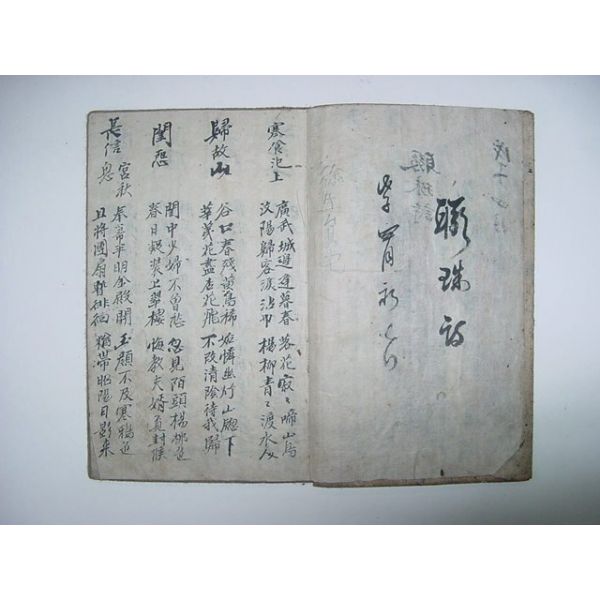 聯珠詩
聯珠詩
寒食汜上
廣武城邊逢暮春 落花寂〻啼山鳥
汶陽歸客淚沾巾 楊柳青〻渡水人
歸故山
谷口春殘黃鳥稀 始憐幽竹山窓下
花盡杏花飛 不改清陰待我歸
閨怨
閨中少婦不曾愁 忽見陌頭楊柳色
春日凝粧上翠樓 悔教夫婿覓封侯
長信
宮秋
奉帚平明金殿開 玉顔不及寒鴉色
且將團扇暫徘徊 猶帶昭陽日影來